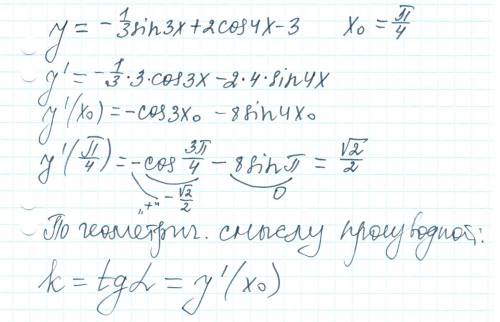 y = -1/3 sin3x + 2cos4x - 3   x₀ = π/4
y' = -1/3 · 3 · cos3x - 2 · 4 · sin4x
y'(x₀) = -cos3x₀ - 8sin4x₀
y'(π/4) = -cos 3π/4 - 8sinπ = √2/2
„+“ -√2/2   0
По геометрич. смыслу производной:
k = tgα = y'(x₀)